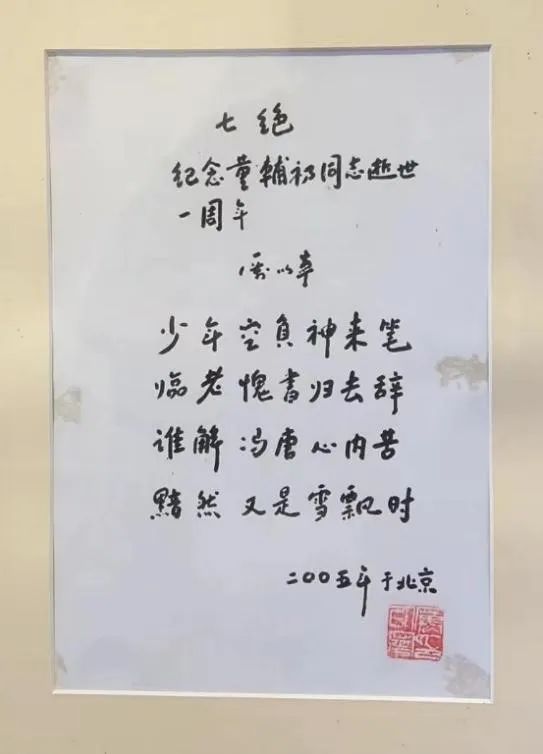 七绝
纪念童辅初同志逝世
一周年
以幸
少年空负神来笔
临老愧书归去辞
谁解冯唐心内苦
黯然又是雪飘时
二〇〇五年于北京